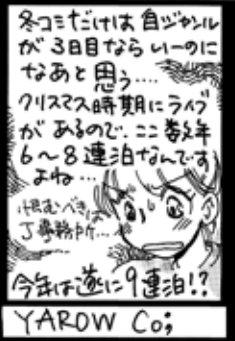 冬コミだけは自ジャンル
が3日目ならいーのに
なあと思う‥‥
クリスマス時期にライブ
があるので、ここ数年
6〜8連泊なんです
よね…
恨むべきは
J事務所…
今年は遂に9連泊!?
YAROW Co;